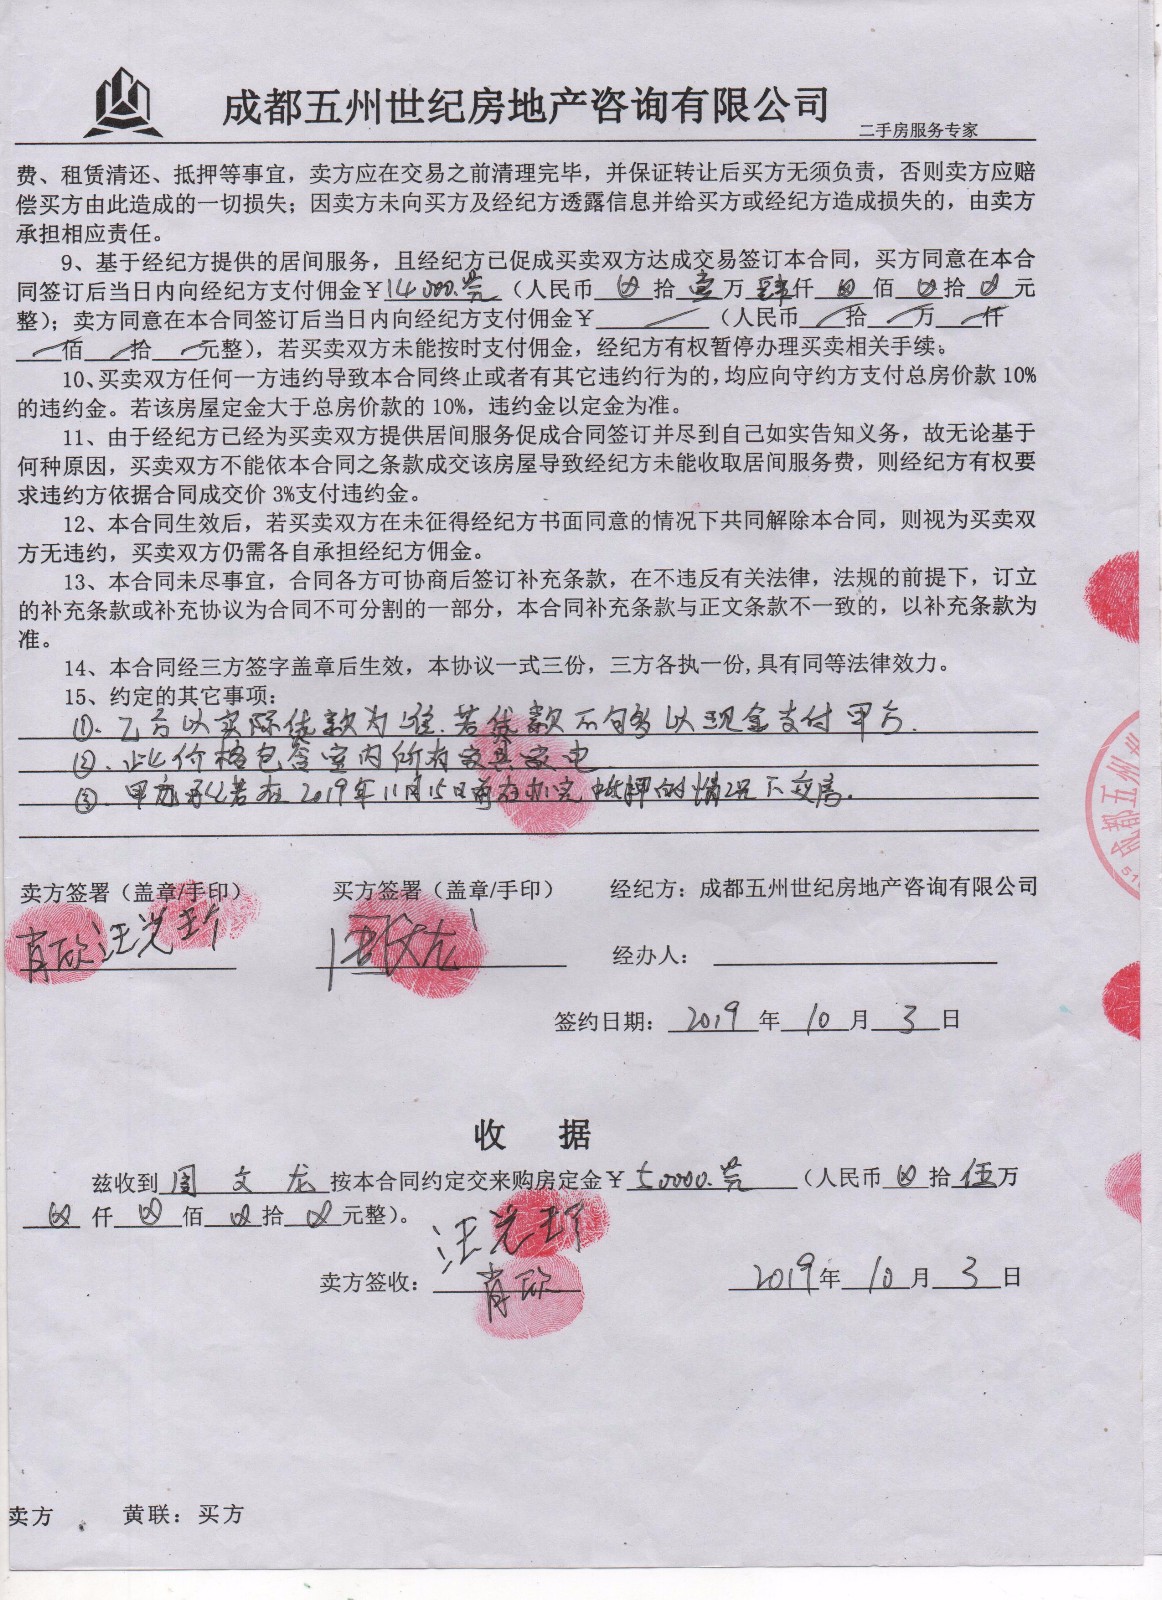 成都五州世纪房地产咨询有限公司
二手房服务专家
费、租赁清还、抵押等事宜，卖方应在交易之前清理完毕，并保证转让后买方无须负责，否则卖方应赔
偿买方由此造成的一切损失；因卖方未向买方及经纪方透露信息并给买方或经纪方造成损失的，由卖方
承担相应责任。
9、基于经纪方提供的居间服务，且经纪方已促成买卖双方达成交易签订本合同，买方同意在本合
同签订后当日内向经纪方支付佣金￥14000.（人民币 拾 壹万 肆仟 佰 拾 元
整）；卖方同意在本合同签订后当日内向经纪方支付佣金￥ （人民币 拾 万 仟
佰 拾 元整），若买卖双方未能按时支付佣金，经纪方有权暂停办理买卖相关手续。
10、买卖双方任何一方违约导致本合同终止或者有其它违约行为的，均应向守约方支付总房价款10%
的违约金。若该房屋定金大于总房价款的10%，违约金以定金为准。
11、由于经纪方已经为买卖双方提供居间服务促成合同签订并尽到自己如实告知义务，故无论基于
何种原因，买卖双方不能依本合同之条款成交该房屋导致经纪方未能收取居间服务费，则经纪方有权要
求违约方依据合同成交价3%支付违约金。
12、本合同生效后，若买卖双方在未征得经纪方书面同意的情况下共同解除本合同，则视为买卖双
方无违约，买卖双方仍需各自承担经纪方佣金。
13、本合同未尽事宜，合同各方可协商后签订补充条款，在不违反有关法律，法规的前提下，订立
的补充条款或补充协议为合同不可分割的一部分，本合同补充条款与正文条款不一致的，以补充条款为
准。
14、本合同经三方签字盖章后生效，本协议一式三份，三方各执一份,具有同等法律效力。
15、约定的其它事项：
①. 乙方以实际贷款为准.若贷款不够以现金支付甲方.
②. 此价格包含室内所有家具家电.
③. 甲方 若在2019年11月15日前 办完抵押的情况下交房.
卖方签署（盖章/手印）
买方签署（盖章/手印）
经纪方：成都五州世纪房地产咨询有限公司
肖欣 汪光
周文龙
经办人：
签约日期：2019年10月3日
收 据
兹收到 周文龙 按本合同约定交来购房定金￥50000.（人民币 拾 伍万
仟 佰 拾 元整）。
汪光
卖方签收：肖欣
2019年10月3日
成都五州
卖方 黄联：买方